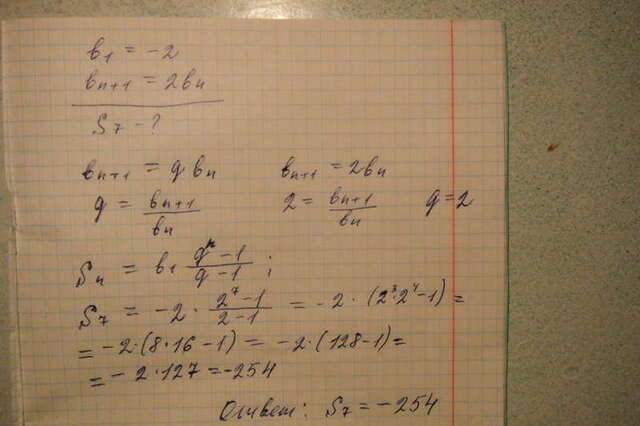 b₁ = -2
bₙ₊₁ = 2bₙ
S₇ - ?
bₙ₊₁ = q bₙ bₙ₊₁ = 2bₙ
q = bₙ₊₁/bₙ 2 = bₙ₊₁/bₙ q = 2
Sₙ = b₁ (qⁿ - 1)/(q - 1) ;
S₇ = -2 · (2⁷ - 1)/(2 - 1) = -2 · (2³·2⁴ - 1) =
= -2·(8·16 - 1) = -2·(128 - 1) =
= -2·127 = -254
Ответ: S₇ = -254